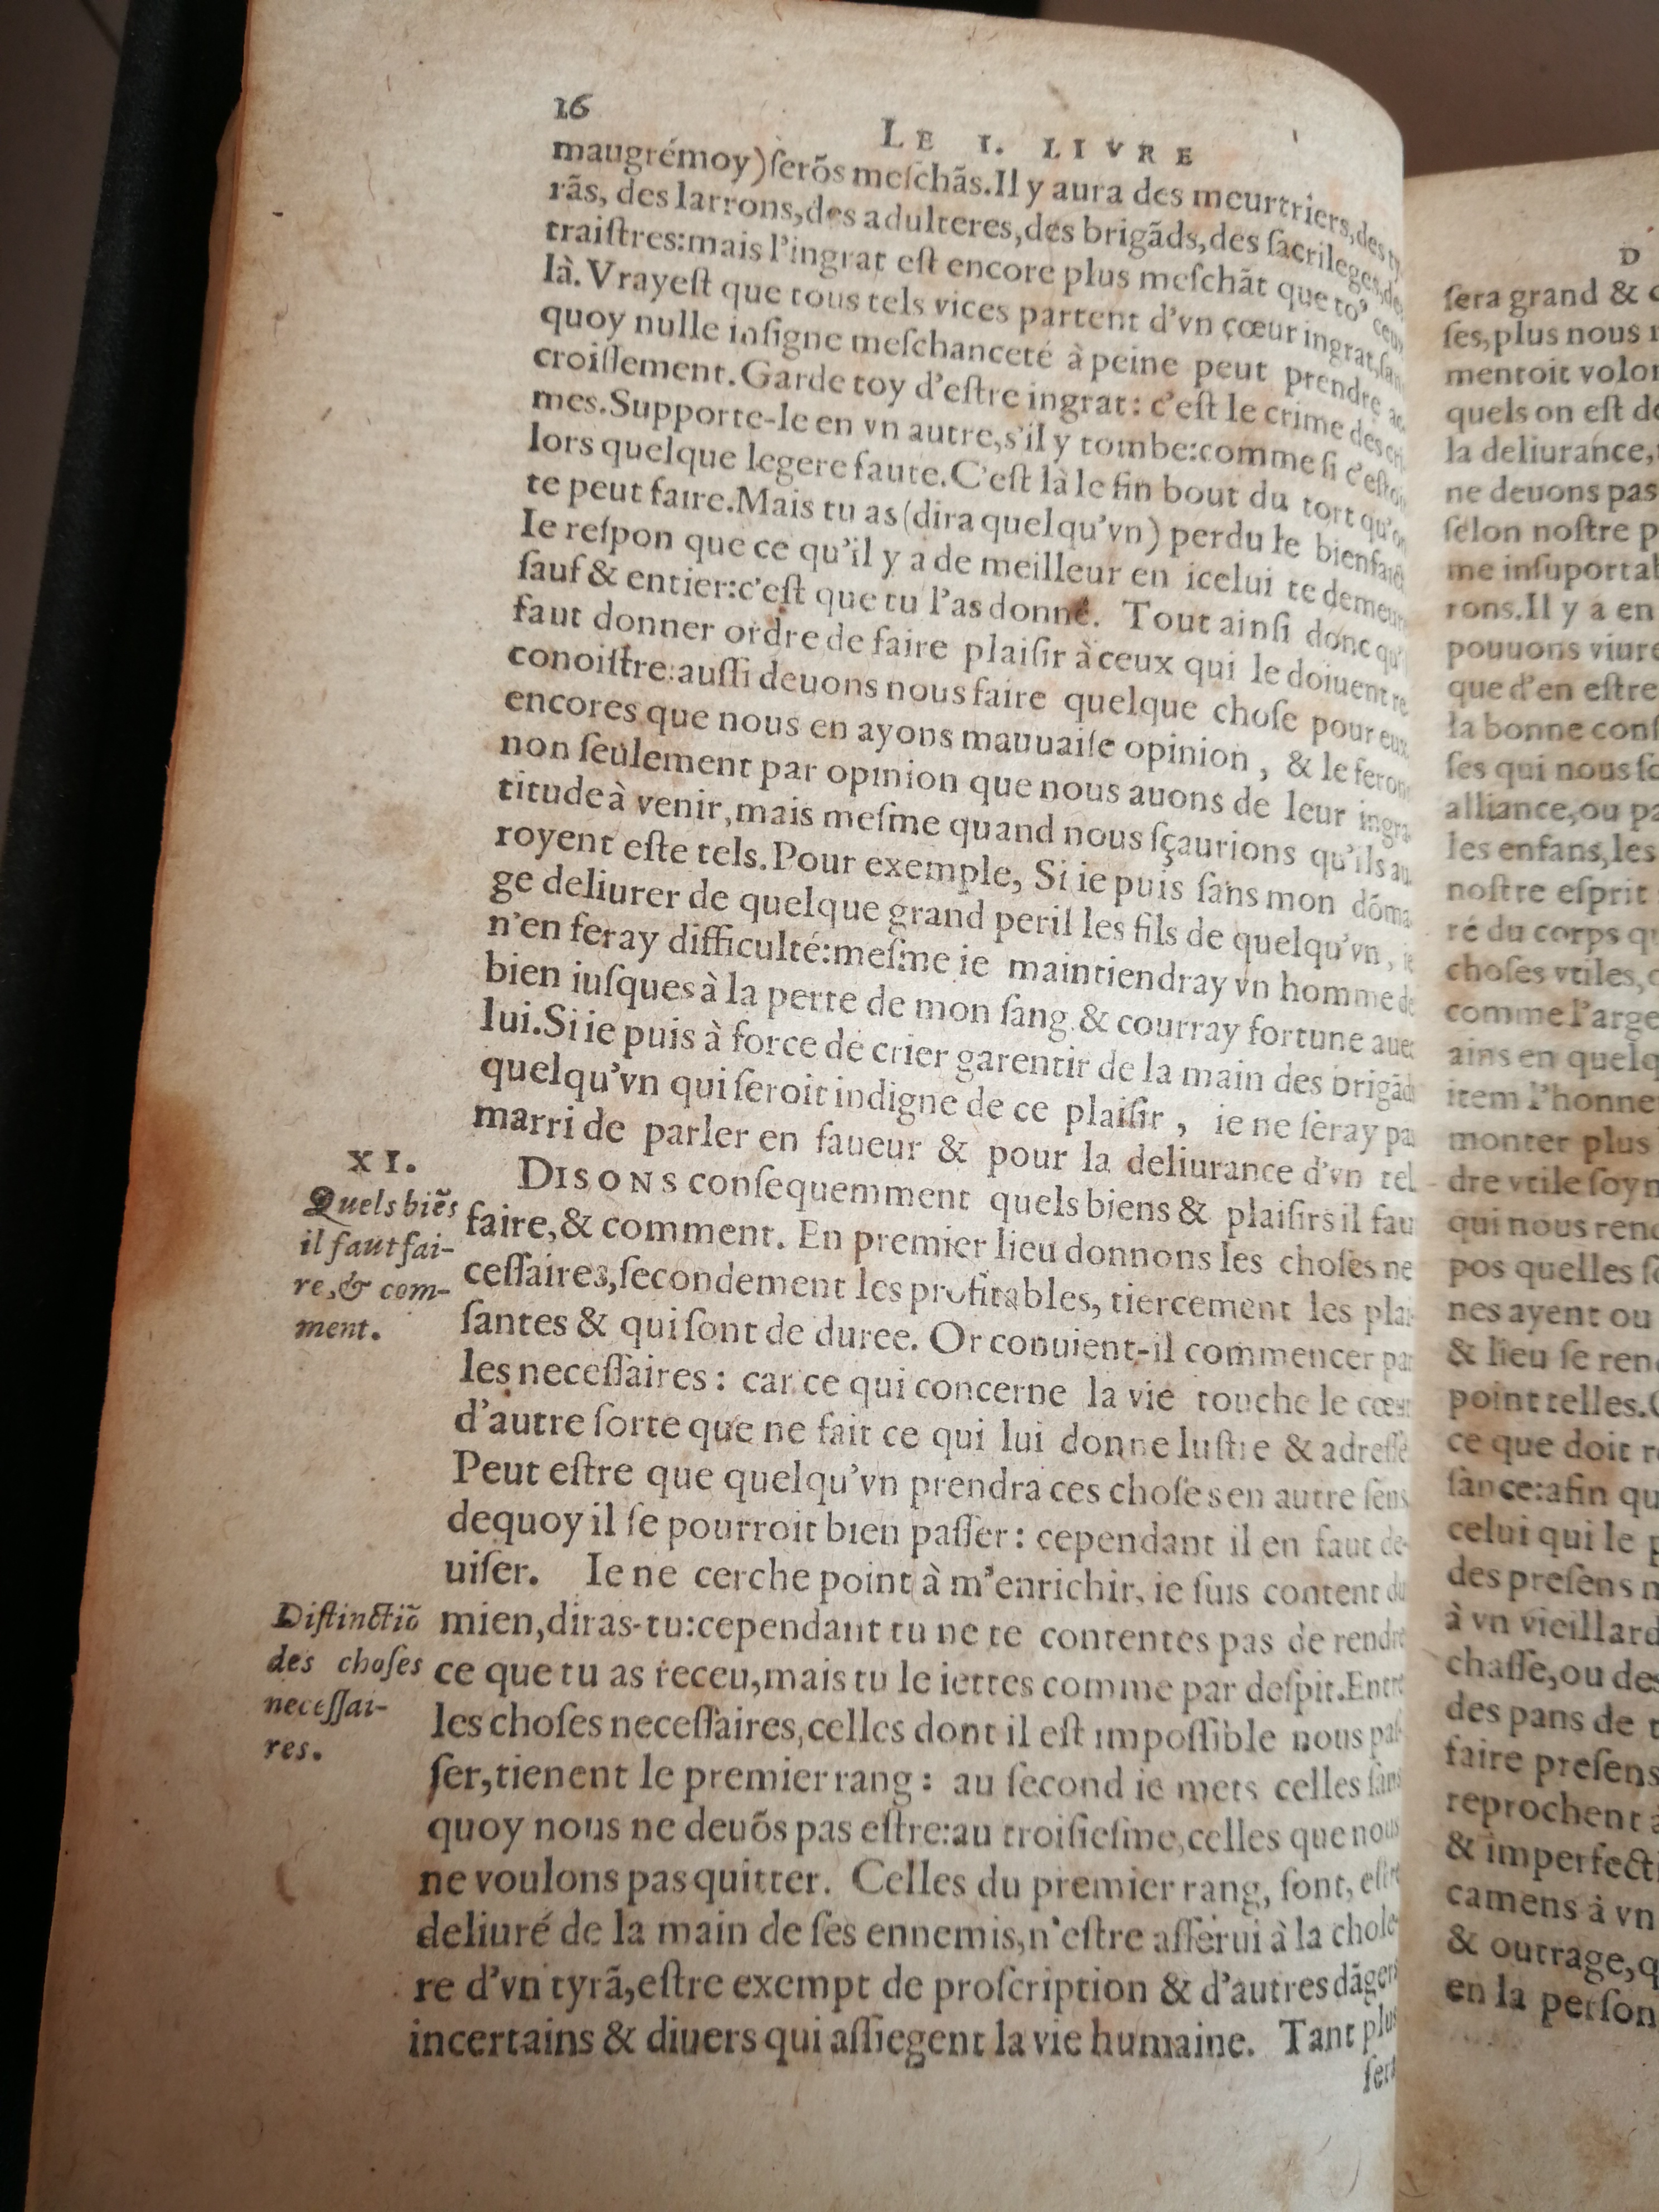 16
LE I. LIVRE
maugrémoy)ſerõs meſchãs.Il y aura des meurtriers,des ty
rãs, des larrons,des adulteres,des brigãds,des ſacrileges,de
traiſtres:mais l'ingrat eſt encore plus meſchãt que to' ceux
là.Vrayeſt que tous tels vices partent d'vn cœur ingrat,ſan
quoy nulle inſigne meſchanceté à peine peut prendre ac
croiſſement.Garde toy d'eſtre ingrat: c'eſt le crime des cri
mes.Supporte-le en vn autre,s'il y tombe:comme ſi c'eſtoit
lors quelque legere faute.C'eſt là le fin bout du tort qu'on
te peut faire.Mais tu as (dira quelqu'vn) perdu le bienfaict
Ie reſpon que ce qu'il y a de meilleur en icelui te demeure
ſauf & entier:c'eſt que tu l'as donné. Tout ainſi donc qu'i
faut donner ordre de faire plaiſir à ceux qui le doiuent re
conoiſtre:auſſi deuons nous faire quelque choſe pour eux
encores que nous en ayons mauuaiſe opinion, & le ferons
non ſeulement par opinion que nous auons de leur ingra
titude à venir,mais meſme quand nous ſçaurions qu'ils au
royent eſte tels.Pour exemple, Si ie puis ſans mon dõma
ge deliurer de quelque grand peril les fils de quelqu'vn, ie
n'en feray difficulté:meſme ie maintiendray vn homme de
bien iuſques à la perte de mon ſang & courray fortune auec
lui.Si ie puis à force de crier garentir de la main des brigãds
quelqu'vn qui ſeroit indigne de ce plaiſir, ie ne ſeray pas
marri de parler en faueur & pour la deliurance d'vn tel
XI.
Quels biẽs
il faut fai-
re, & com-
ment.
DISONS conſequemment quels biens & plaiſirs il fau
faire,& comment. En premier lieu donnons les choſes ne
ceſſaires,ſecondement les profitables, tiercement les plai-
ſantes & qui ſont de duree. Or conuient-il commencer par
les neceſſaires: car ce qui concerne la vie touche le cœur
d'autre ſorte que ne fait ce qui lui donne luſtre & adreſſe
Peut eſtre que quelqu'vn prendra ces choſes en autre ſens
dequoy il ſe pourroit bien paſſer: cependant il en faut de-
uiſer. Ie ne cerche point à m'enrichir, ie ſuis content du
Diſtinctiõ
des choſes
neceſſai-
res.
mien,diras-tu:cependant tu ne te contentes pas de rendre
ce que tu as receu,mais tu le iettes comme par deſpit.Entre
les choſes neceſſaires,celles dont il eſt impoſſible nous paſ-
ſer,tienent le premier rang: au ſecond ie mets celles ſans
quoy nous ne deuõs pas eſtre:au troiſieſme,celles que nous
ne voulons pas quitter. Celles du premier rang, ſont, eſtre
deliuré de la main de ſes ennemis,n'eſtre aſſerui à la chole-
re d'vn tyrã,eſtre exempt de proſcription & d'autres dãgers
incertains & diuers qui aſſiegent la vie humaine. Tant plus
ſera
D
ſera grand &
ſes,plus nous
mentoit
quels on eſt
la deliurance,
ne deuons pas
ſelon noſtre
me
rons.Il y a en
pouuons viure
que d'en eſtre
la bonne
ſes qui nous
alliance,ou
les enfans,les
noſtre eſprit
ré du corps
choſes vtiles,
comme
ains en
item
monter plus
dre vtile
qui nous
pos quelles
nes ayent ou
& lieu ſe
point telles.
ce que doit
ſance:afin
celui qui le
des preſens
à vn vieillard
chaſſe,ou
des pans de
faire preſens
reprochent
&
camens à vn
& outrage,
en la